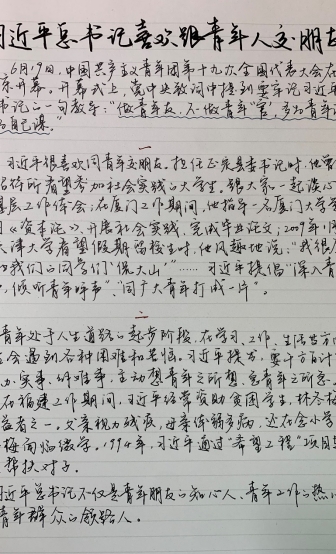 习近平总书记喜欢跟青年人交朋友
6月19日,中国共产主义青年团第十九次全国代表大会在
京开幕。开幕式上,党中央致词中提到要牢记习近平
书记的一句教导:"做青年友,不做青年'官',多为青年
自己谋。"
一
习近平很喜欢同青年交朋友。担任正定县委书记时,他曾
招待所看望参加社会实践的大学生,跟大家一起谈
基层工作体会;在厦门工作期间,他指导一名厦门大学学
《资本论》、开展社会实践、完成毕业论文;2009年
天津大学看望假期留校生时,他风趣地说:"我很
我们的同学们'侃大山'"……习近平提倡"深入青
,倾听青年呼声","同广大青年打成一片"。
二
青年处于人生道路的起步阶段,在学习、工作、生活
会遇到各种困难和苦恼。习近平提出,要千方百计
办实事、解难事,主动想青年之所想、急青年之所急
在福建工作期间,习近平经常资助贫困学生,林冬梅
益者之一。父亲视力残疾,母亲体弱多病,还在念小学
梅面临辍学。1994年,习近平通过"希望工程"项目
帮扶对子。
习近平总书记不仅是青年朋友的知心人、青年工作的热
青年群众的领路人。